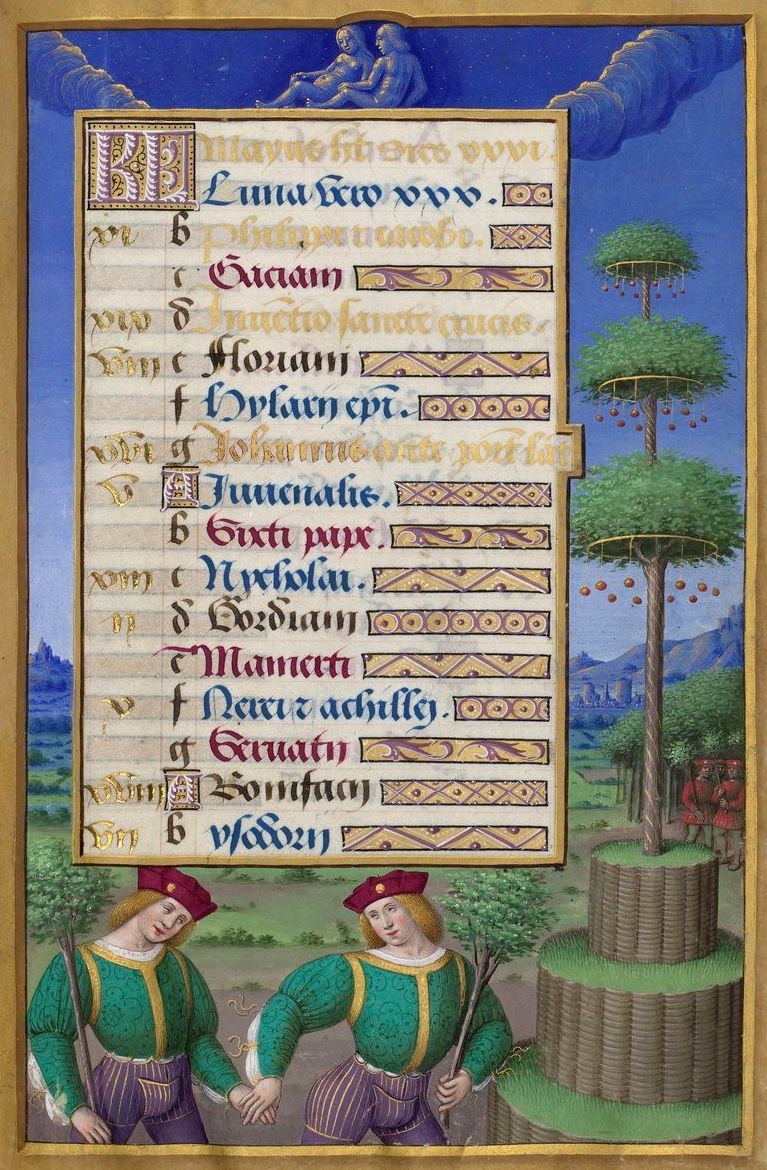 KL Mayus ht dies xxxi.
Luna vero xxx.
xi b Philippi et iacobi.
c Gaciani
xix d Inuentio sancte crucis.
viii e Floriani
f Hylarii epi.
xvi g Johannis ante port lati
v A Iuuenalis.
b Sixti pape.
xiii c Nycholai.
ii d Gordiani
e Mamerti
x f Nerei z achillej.
g Seruatii
xviii A Bonifacij
vii b ysodorii